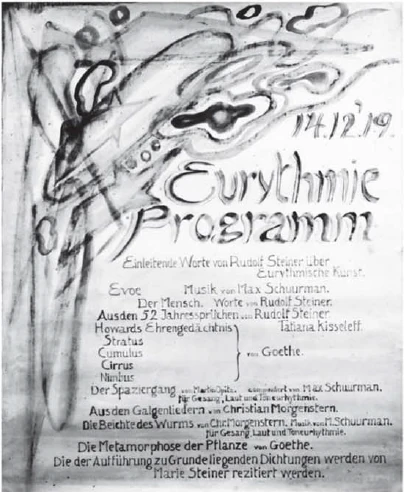 14.12.19.
Eurythmie
Programm
Einleitende Worte von Rudolf Steiner über
Eurythmische Kunst.
Evoe Musik von Max Schuurman.
Der Mensch. Worte von Rudolf Steiner.
Aus den 52 Jahressprüchen von Rudolf Steiner
Howards Ehrengedächtnis Tatiana Kisseleff.
Stratus
Cumulus von Goethe.
Cirrus
Nimbus
Der Spaziergang von Martin Opitz. von Max Schuurman.
für Gesang, Laut und Toneurhythmie.
Aus den Galgenliedern von Christian Morgenstern.
Die Beichte des Wurms von Chr. Morgenstern. Musik von M. Schuurman.
für Gesang, Laut und Toneurhythmie.
Die Metamorphose der Pflanze von Goethe.
Die der Aufführung zu Grunde liegenden Dichtungen werden von
Marie Steiner rezitiert werden.